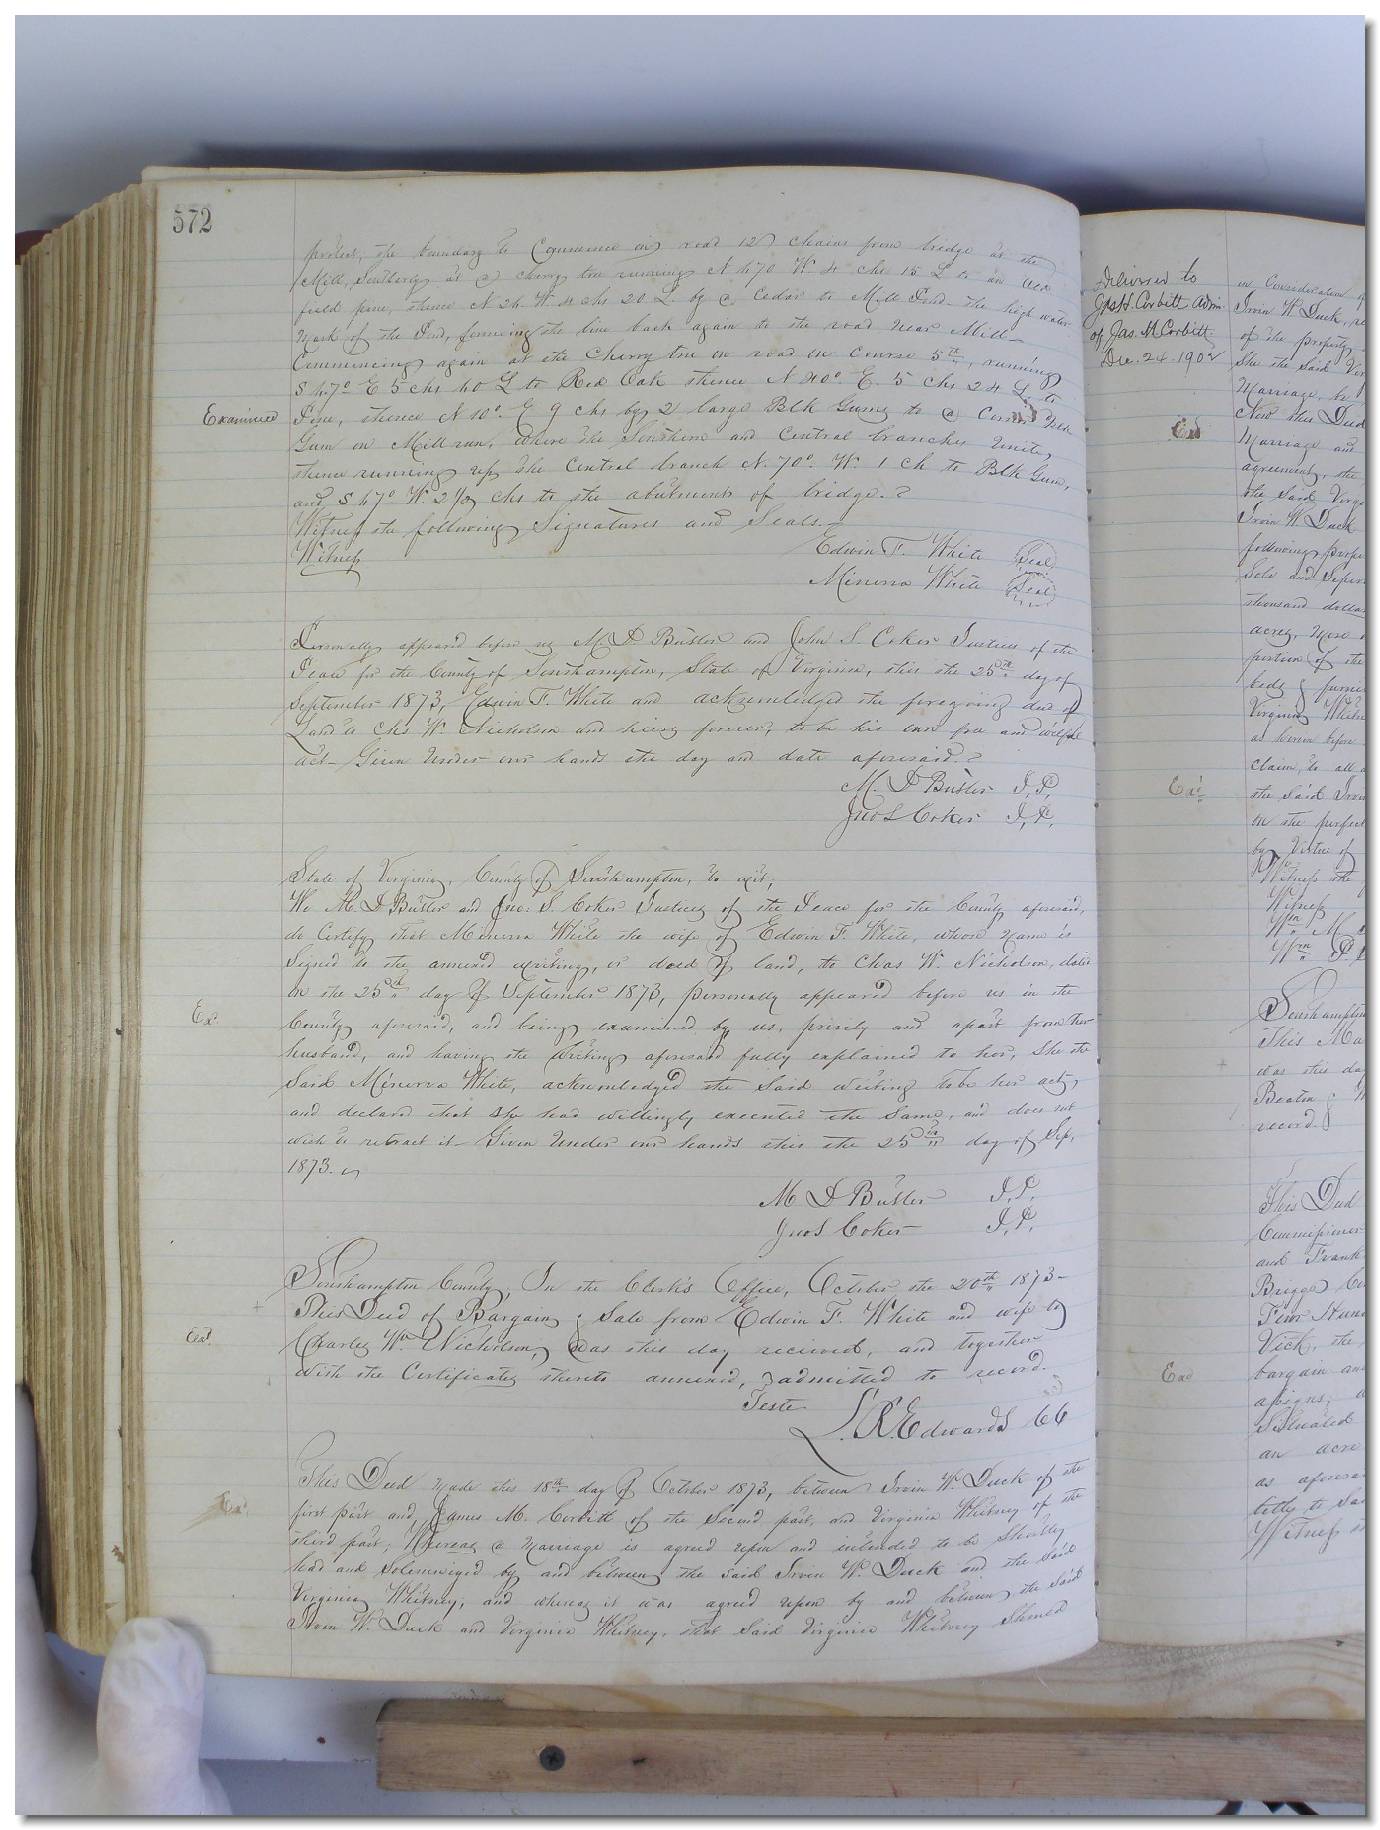 572
the boundary to Commence in road 12 chains from bridge at the
Mill, Southerly at a cherry tree running N 470 W 4 chs 15 L to an old
field pine, thence N 26 W 4 chs 20 L. by a Cedar to Mill Pond. the high water
mark of the Pond, forming the line back again to the road near Mill
Commencing again at the Cherry tree on road on course 5th, running
S 47° E 5 chs 60 L to Red Oak thence N 40°. E. 5 chs 24 L to
Examined
Pine, thence N 10°. E 9 chs by 2 large Blk Gums to a Corner
Gum on Mill run, where the Southern and Central branches Unite,
thence running up the Central branch N. 70°. W. 1 ch to Blk Gum,
and S 47° W. 2 1/2 chs to the abutments of bridge.
Witness the following Signatures and Seals.
Witness
Edwin F. White Seal
Minerva White Seal
Personally appeared before us M D Butler and John S. Coker Justices of the
Peace for the County of Southampton, State of Virginia, this the 25th day of
September 1873, Edwin F. White and acknowledged the foregoing deed of
Land to Chs W. Nicholson and heirs forever, to be his own free and willful
act- Given Under our hands the day and date aforesaid.
M. D Butler J.P.
Jno S Coker J.P.
State of Virginia, County of Southampton, to wit;
We M. D Butler and Jno: S. Coker Justices of the Peace for the County aforesaid,
do Certify that Minerva White the wife of Edwin F. White, whose Name is
Signed to the annexed writing, or deed of land, to Chas W. Nicholson, date
on the 25th day of September 1873, personally appeared before us in the
Ex.
County aforesaid, and being examined by us, privily and apart from her
husband, and having the Writing aforesaid fully explained to her, She the
Said Minerva White, acknowledged the Said writing to be her act,
and declared that She had willingly executed the Same, and does not
wish to retract it- Given Under our hands this the 25th day of Sep,
1873.
M D Butler J.P.
Jno S Coker J.P.
Southampton County, In the Clerk's Office, October the 20th 1873-
This Deed of Bargain & Sale from Edwin F. White and wife to
Charles Wm. Nicholson, Was this day received, and together
With the Certificates thereto annexed, admitted to record.
Teste
L. R. Edwards CC
This Deed Made this 18th day of October 1873, between Irvin W. Duck of the
first part and James M. Corbitt of the Second part, and Virginia Whitney of the
third part; Whereas a Marriage is agreed upon and intended to be Shortly
had and Solemnized by and between the said Irvin W. Duck and the Said
Virginia Whitney; and whereas it was agreed upon by and between the Said
Irvin W. Duck and Virginia Whitney, that Said Virginia Whitney Should
Delivered to
Jas H. Corbitt Admr.
of Jas. M Corbitt
Dec. 24. 1902
in Consideration
Irvin W Duck,
of the property
She the Said
Marriage,
Now this Deed
Marriage and
agreement, the
the Said
Irvin W Duck
following
Sole and
thousand
acres, More
portion of the
beds &
Virginia
as herein before
Claim, to all
the Said
on the perfect
by Virtue of
Witness the
Witness
Wm M
Wm P.
This
was this
Beaton &
record.
This Deed
Commissioner
and Frank
Briggs
Four
Vick, the
bargain and
assigns;
Situated
an acre
as
title, to
Witness